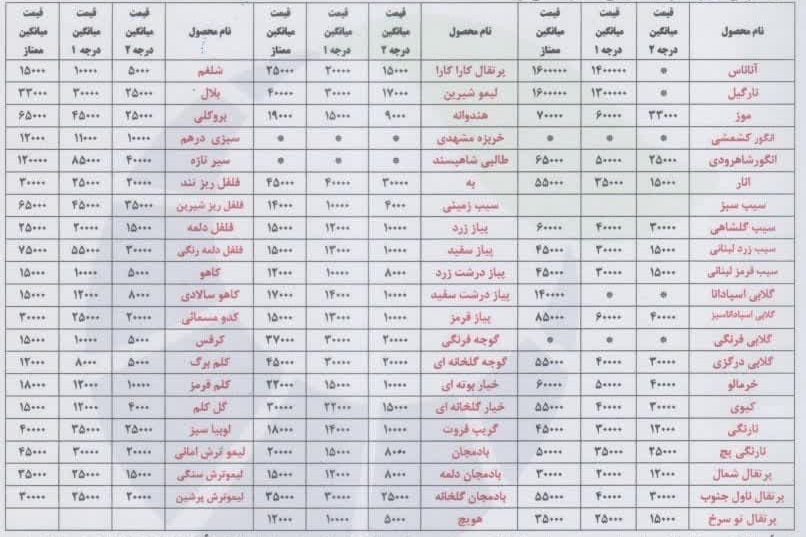 نام محصول | قیمت میانگین درجه ۲ | قیمت میانگین درجه ۱ | قیمت میانگین ممتاز | نام محصول | قیمت میانگین درجه ۲ | قیمت میانگین درجه ۱ | قیمت میانگین ممتاز | نام محصول | قیمت میانگین درجه ۲ | قیمت میانگین درجه ۱ | قیمت میانگین ممتاز
آناناس | * | ۱۴۰۰۰۰۰ | ۱۶۰۰۰۰۰ | پرتقال کارا کارا | ۱۵۰۰۰ | ۲۰۰۰۰ | ۲۵۰۰۰ | شلغم | ۵۰۰۰ | ۱۰۰۰۰ | ۱۵۰۰۰
نارگیل | * | ۱۳۰۰۰۰۰ | ۱۶۰۰۰۰۰ | لیمو شیرین | ۱۷۰۰۰ | ۳۰۰۰۰ | ۴۰۰۰۰ | بلال | ۲۵۰۰۰ | ۳۰۰۰۰ | ۳۳۰۰۰
موز | ۳۳۰۰۰ | ۶۰۰۰۰ | ۷۰۰۰۰ | هندوانه | ۹۰۰۰ | ۱۵۰۰۰ | ۱۹۰۰۰ | بروکلی | ۲۵۰۰۰ | ۴۵۰۰۰ | ۶۵۰۰۰
انگور کشمشی | * | * | * | خربزه مشهدی | * | * | * | سبزی درهم | ۱۰۰۰۰ | ۱۱۰۰۰ | ۱۲۰۰۰
انگورشاهرودی | ۲۵۰۰۰ | ۵۰۰۰۰ | ۶۵۰۰۰ | طالبی شاهپسند | * | * | * | سیر تازه | ۴۰۰۰۰ | ۸۵۰۰۰ | ۱۲۰۰۰۰
انار | ۱۵۰۰۰ | ۳۵۰۰۰ | ۵۵۰۰۰ | به | ۳۰۰۰۰ | ۴۰۰۰۰ | ۴۵۰۰۰ | فلفل ریز تند | ۲۰۰۰۰ | ۲۵۰۰۰ | ۳۰۰۰۰
سیب سبز | | | | سیب زمینی | ۴۰۰۰ | ۱۰۰۰۰ | ۱۴۰۰۰ | فلفل ریز شیرین | ۳۵۰۰۰ | ۴۵۰۰۰ | ۶۵۰۰۰
سیب گلشاهی | ۳۰۰۰۰ | ۴۰۰۰۰ | ۶۰۰۰۰ | پیاز زرد | ۱۰۰۰۰ | ۱۲۰۰۰ | ۱۵۰۰۰ | فلفل دلمه | ۱۵۰۰۰ | ۲۰۰۰۰ | ۲۵۰۰۰
سیب زرد لبنانی | ۱۵۰۰۰ | ۳۰۰۰۰ | ۴۵۰۰۰ | پیاز سفید | ۱۰۰۰۰ | ۱۳۰۰۰ | ۱۵۰۰۰ | فلفل دلمه رنگی | ۳۰۰۰۰ | ۵۵۰۰۰ | ۷۵۰۰۰
سیب قرمز لبنانی | ۱۵۰۰۰ | ۳۰۰۰۰ | ۴۵۰۰۰ | پیاز درشت زرد | ۸۰۰۰ | ۱۰۰۰۰ | ۱۲۰۰۰ | کاهو | ۵۰۰۰ | ۱۰۰۰۰ | ۱۵۰۰۰
گلابی اسپادانا | * | * | ۱۴۰۰۰۰ | پیاز درشت سفید | ۱۰۰۰۰ | ۱۴۰۰۰ | ۱۷۰۰۰ | کاهو سالادی | ۸۰۰۰ | ۱۲۰۰۰ | ۱۵۰۰۰
گلابی اسپاداناسبز | ۴۰۰۰۰ | ۶۰۰۰۰ | ۸۵۰۰۰ | پیاز قرمز | ۱۰۰۰۰ | ۱۳۰۰۰ | ۱۵۰۰۰ | کدو مسمائی | ۲۰۰۰۰ | ۲۵۰۰۰ | ۳۰۰۰۰
گلابی فرنگی | * | * | * | گوجه فرنگی | ۲۰۰۰۰ | ۳۰۰۰۰ | ۳۷۰۰۰ | کرفس | ۵۰۰۰ | ۱۰۰۰۰ | ۱۵۰۰۰
گلابی درگزی | ۳۰۰۰۰ | ۴۰۰۰۰ | ۵۵۰۰۰ | گوجه گلخانه ای | ۲۰۰۰۰ | ۳۰۰۰۰ | ۴۵۰۰۰ | کلم برگ | ۵۰۰۰ | ۸۰۰۰ | ۱۲۰۰۰
خرمالو | ۴۰۰۰۰ | ۵۰۰۰۰ | ۶۰۰۰۰ | خیار بوته ای | ۱۰۰۰۰ | ۱۵۰۰۰ | ۲۲۰۰۰ | کلم قرمز | ۱۰۰۰۰ | ۱۲۰۰۰ | ۱۸۰۰۰
کیوی | ۳۰۰۰۰ | ۴۰۰۰۰ | ۵۵۰۰۰ | خیار گلخانه ای | ۱۵۰۰۰ | ۲۲۰۰۰ | ۳۰۰۰۰ | گل کلم | ۴۰۰۰ | ۱۲۰۰۰ | ۱۵۰۰۰
نارنگی | ۱۲۰۰۰ | ۳۰۰۰۰ | ۴۵۰۰۰ | گریپ فروت | ۱۰۰۰۰ | ۱۴۰۰۰ | ۱۸۰۰۰ | لوبیا سبز | ۲۵۰۰۰ | ۳۵۰۰۰ | ۴۰۰۰۰
نارنگی پج | ۲۵۰۰۰ | ۳۵۰۰۰ | ۵۰۰۰۰ | بادمجان | ۸۰۰۰ | ۱۵۰۰۰ | ۲۰۰۰۰ | لیمو ترش امانی | ۲۰۰۰۰ | ۳۰۰۰۰ | ۴۵۰۰۰
پرتقال شمال | ۱۲۰۰۰ | ۲۰۰۰۰ | ۳۰۰۰۰ | بادمجان دلمه | ۸۰۰۰ | ۱۲۰۰۰ | ۱۵۰۰۰ | لیموترش سنگی | ۱۵۰۰۰ | ۲۵۰۰۰ | ۳۵۰۰۰
پرتقال ناول جنوب | ۳۰۰۰۰ | ۴۰۰۰۰ | ۵۵۰۰۰ | بادمجان گلخانه | ۲۵۰۰۰ | ۳۰۰۰۰ | ۳۵۰۰۰ | لیموترش پرشین | ۲۰۰۰۰ | ۲۵۰۰۰ | ۳۰۰۰۰
پرتقال تو سرخ | ۱۵۰۰۰ | ۲۵۰۰۰ | ۳۵۰۰۰ | هویج | ۵۰۰۰ | ۱۰۰۰۰ | ۱۲۰۰۰